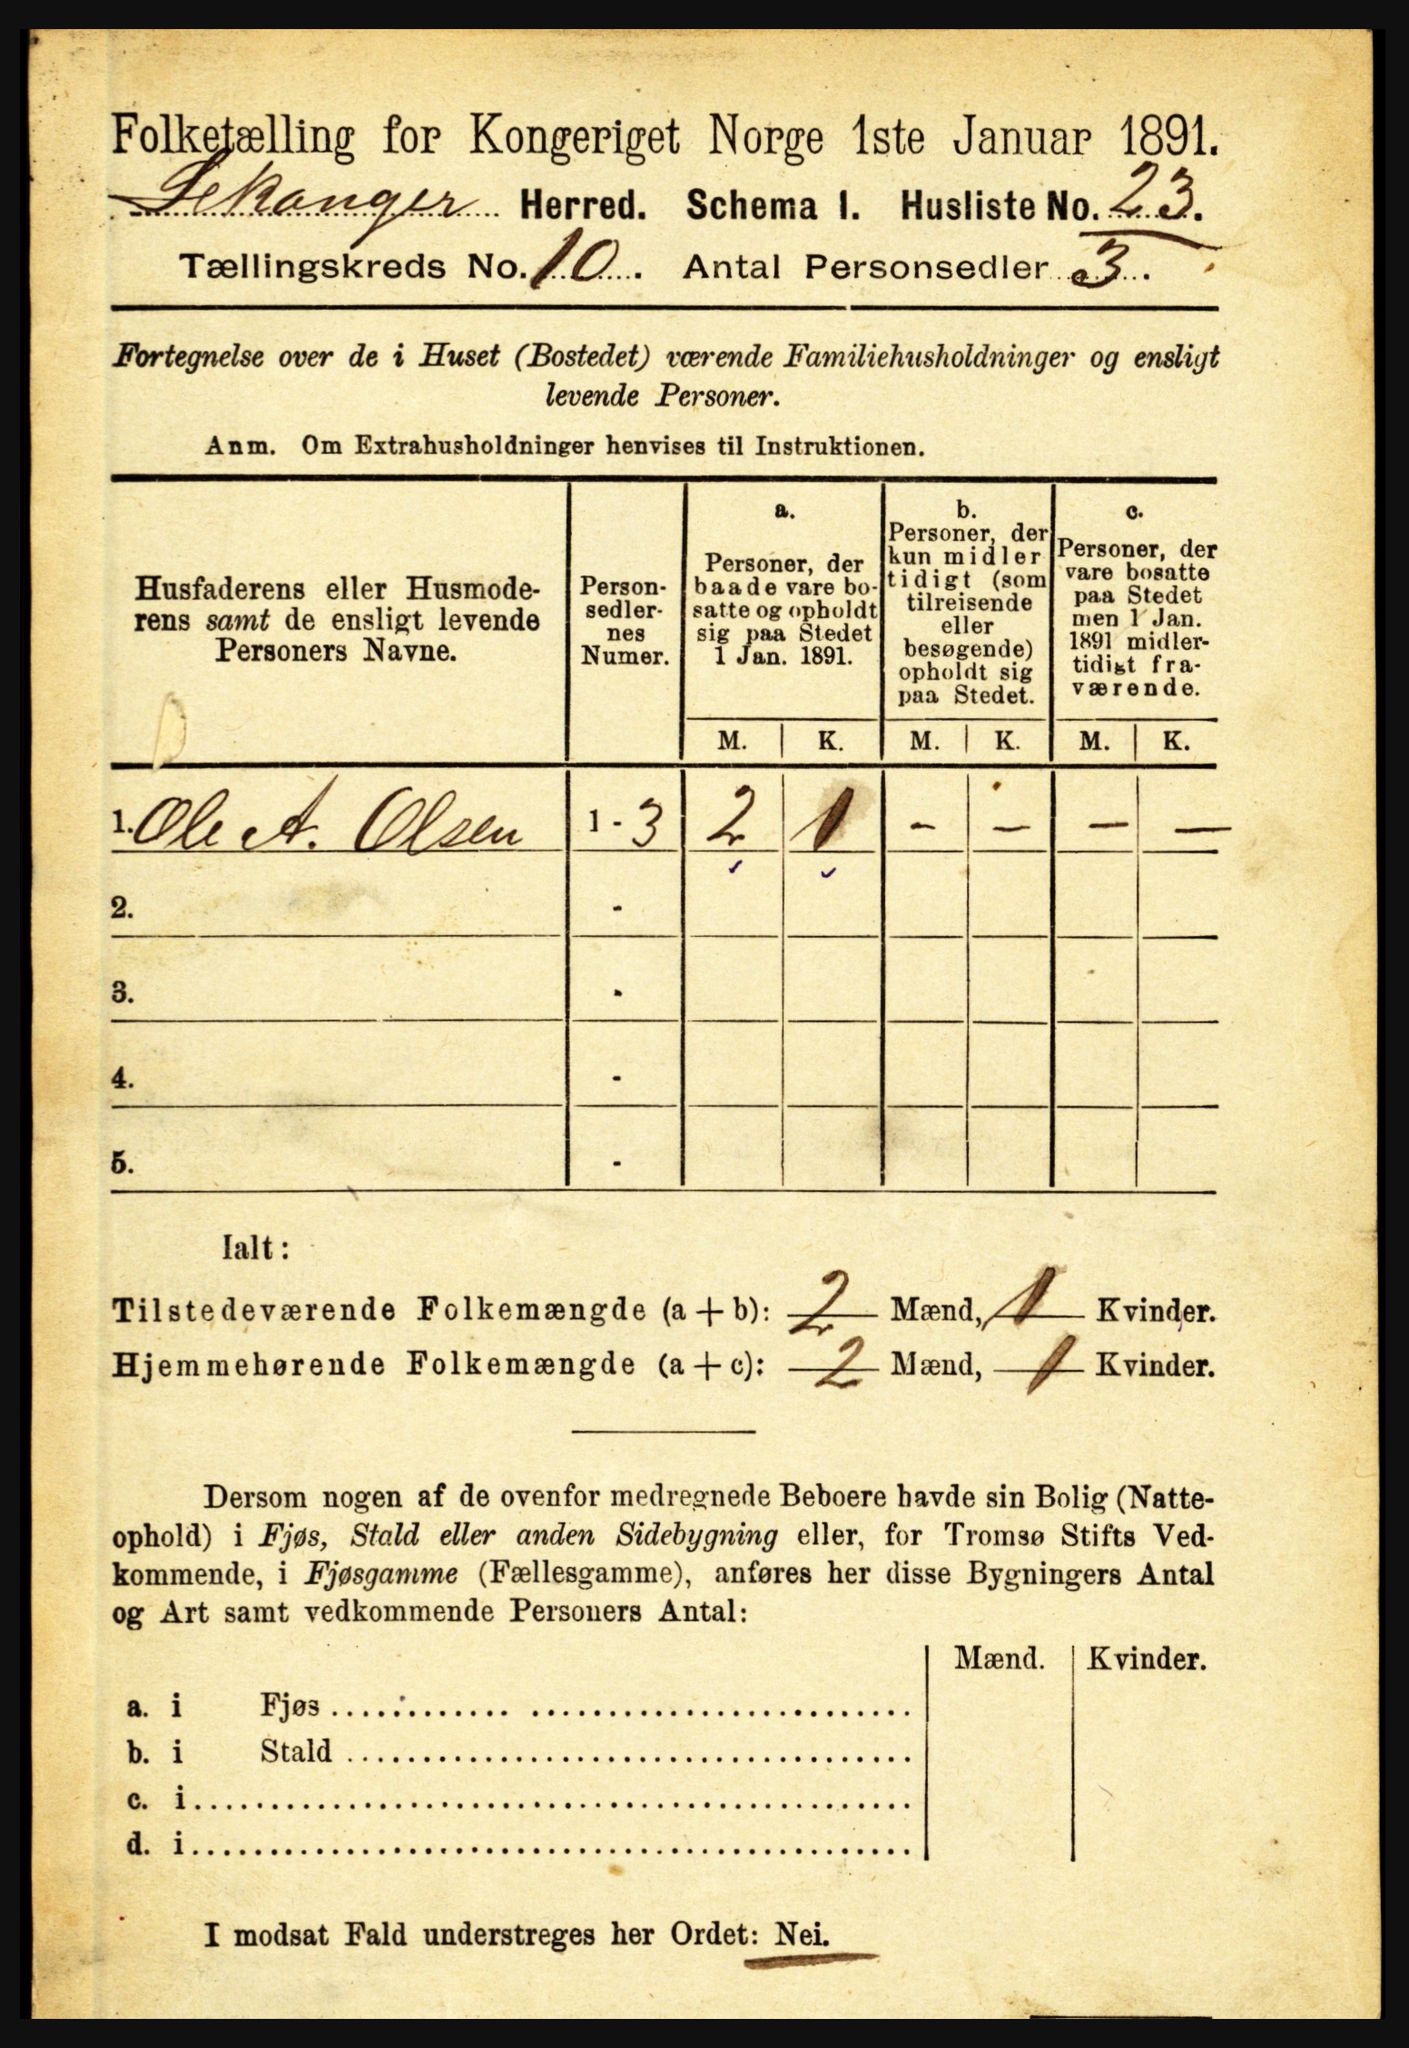 Folketælling for Kongeriget Norge 1ste Januar 1891.
Lekanger Herred. Schema I. Husliste No. 23.
Tællingskreds No. 10. Antal Personsedler 3.
Fortegnelse over de i Huset (Bostedet) værende Familiehusholdninger og ensligt
levende Personer.
Anm. Om Extrahusholdninger henvises til Instruktionen.
Husfaderens eller Husmode-
rens samt de ensligt levende
Personers Navne.
Person-
sedler-
nes
Numer.
a.
Personer, der
baade vare bo-
satte og opholdt
sig paa Stedet
1 Jan. 1891.
b.
Personer, der
kun midler
tidigt (som
tilreisende
eller
besøgende)
opholdt sig
paa Stedet.
c.
Personer, der
vare bosatte
paa Stedet
men 1 Jan.
1891 midler-
tidigt fra-
værende.
M. K. M. K. M. K.
1. Ole A. Olsen 1 - 3 2 1 - - - -
2. -
3. -
4. -
5. -
Ialt:
Tilstedeværende Folkemængde (a + b): 2 Mænd, 1 Kvinder.
Hjemmehørende Folkemængde (a + c): 2 Mænd, 1 Kvinder.
Dersom nogen af de ovenfor medregnede Beboere havde sin Bolig (Natte-
ophold) i Fjøs, Stald eller anden Sidebygning eller, for Tromsø Stifts Ved-
kommende, i Fjøsgamme (Fællesgamme), anføres her disse Bygningers Antal
og Art samt vedkommende Personers Antal:
Mænd. Kvinder.
a. i Fjøs
b. i Stald
c. i
d. i
I modsat Fald understreges her Ordet: Nei.